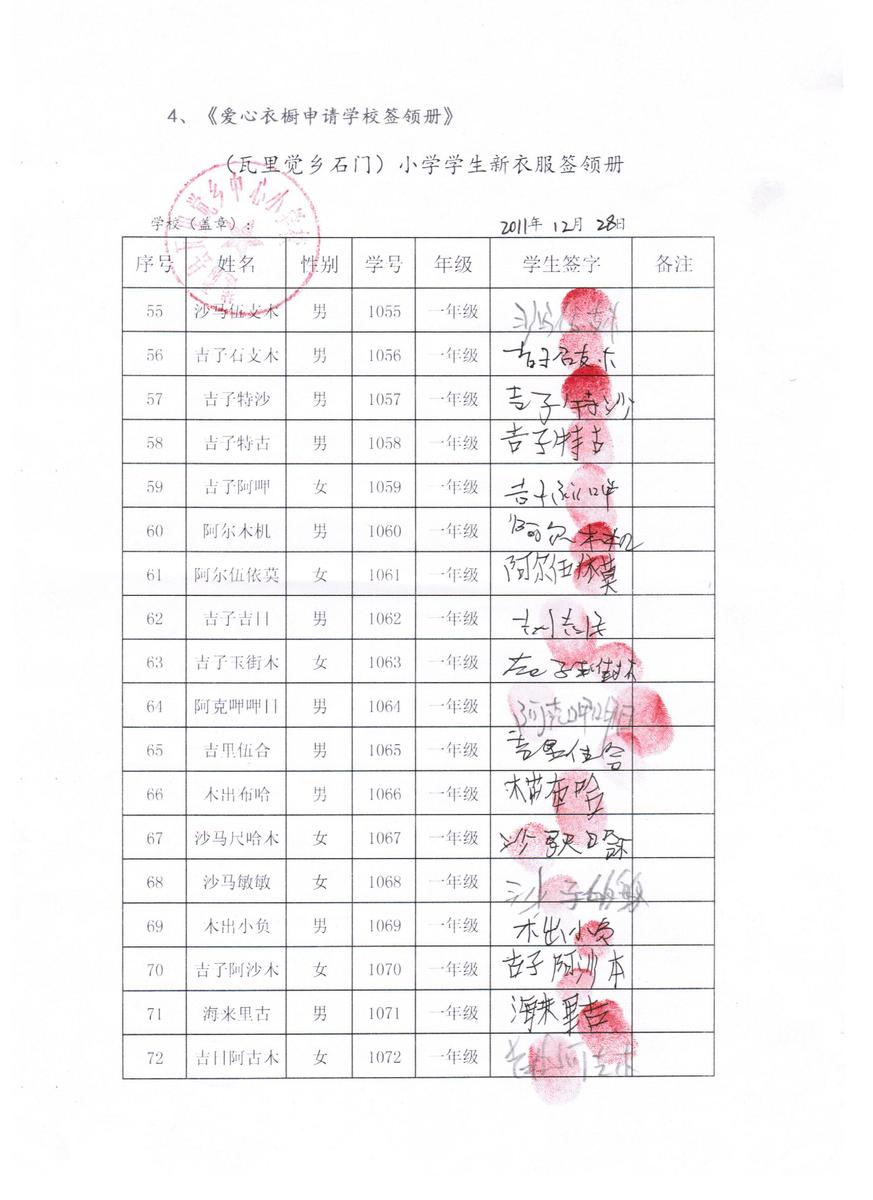 4、《爱心衣橱申请学校签领册》
（瓦里觉乡石门）小学学生新衣服签领册
学校（盖章）： 2011年 12月 28日
序号 姓名 性别 学号 年级 学生签字 备注
55 沙马伍支木 男 1055 一年级
56 吉子石支木 男 1056 一年级 吉子石支木
57 吉子特沙 男 1057 一年级 吉子特沙
58 吉子特古 男 1058 一年级 吉子特古
59 吉子阿呷 女 1059 一年级
60 阿尔木机 男 1060 一年级
61 阿尔伍依莫 女 1061 一年级 阿尔伍依莫
62 吉子吉日 男 1062 一年级
63 吉子玉街木 女 1063 一年级
64 阿克呷呷日 男 1064 一年级
65 吉里伍合 男 1065 一年级 吉里伍合
66 木出布哈 男 1066 一年级
67 沙马尺哈木 女 1067 一年级
68 沙马敏敏 女 1068 一年级
69 木出小负 男 1069 一年级 木出小负
70 吉子阿沙木 女 1070 一年级 吉子阿沙本
71 海来里古 男 1071 一年级 海来里吉
72 吉日阿古木 女 1072 一年级